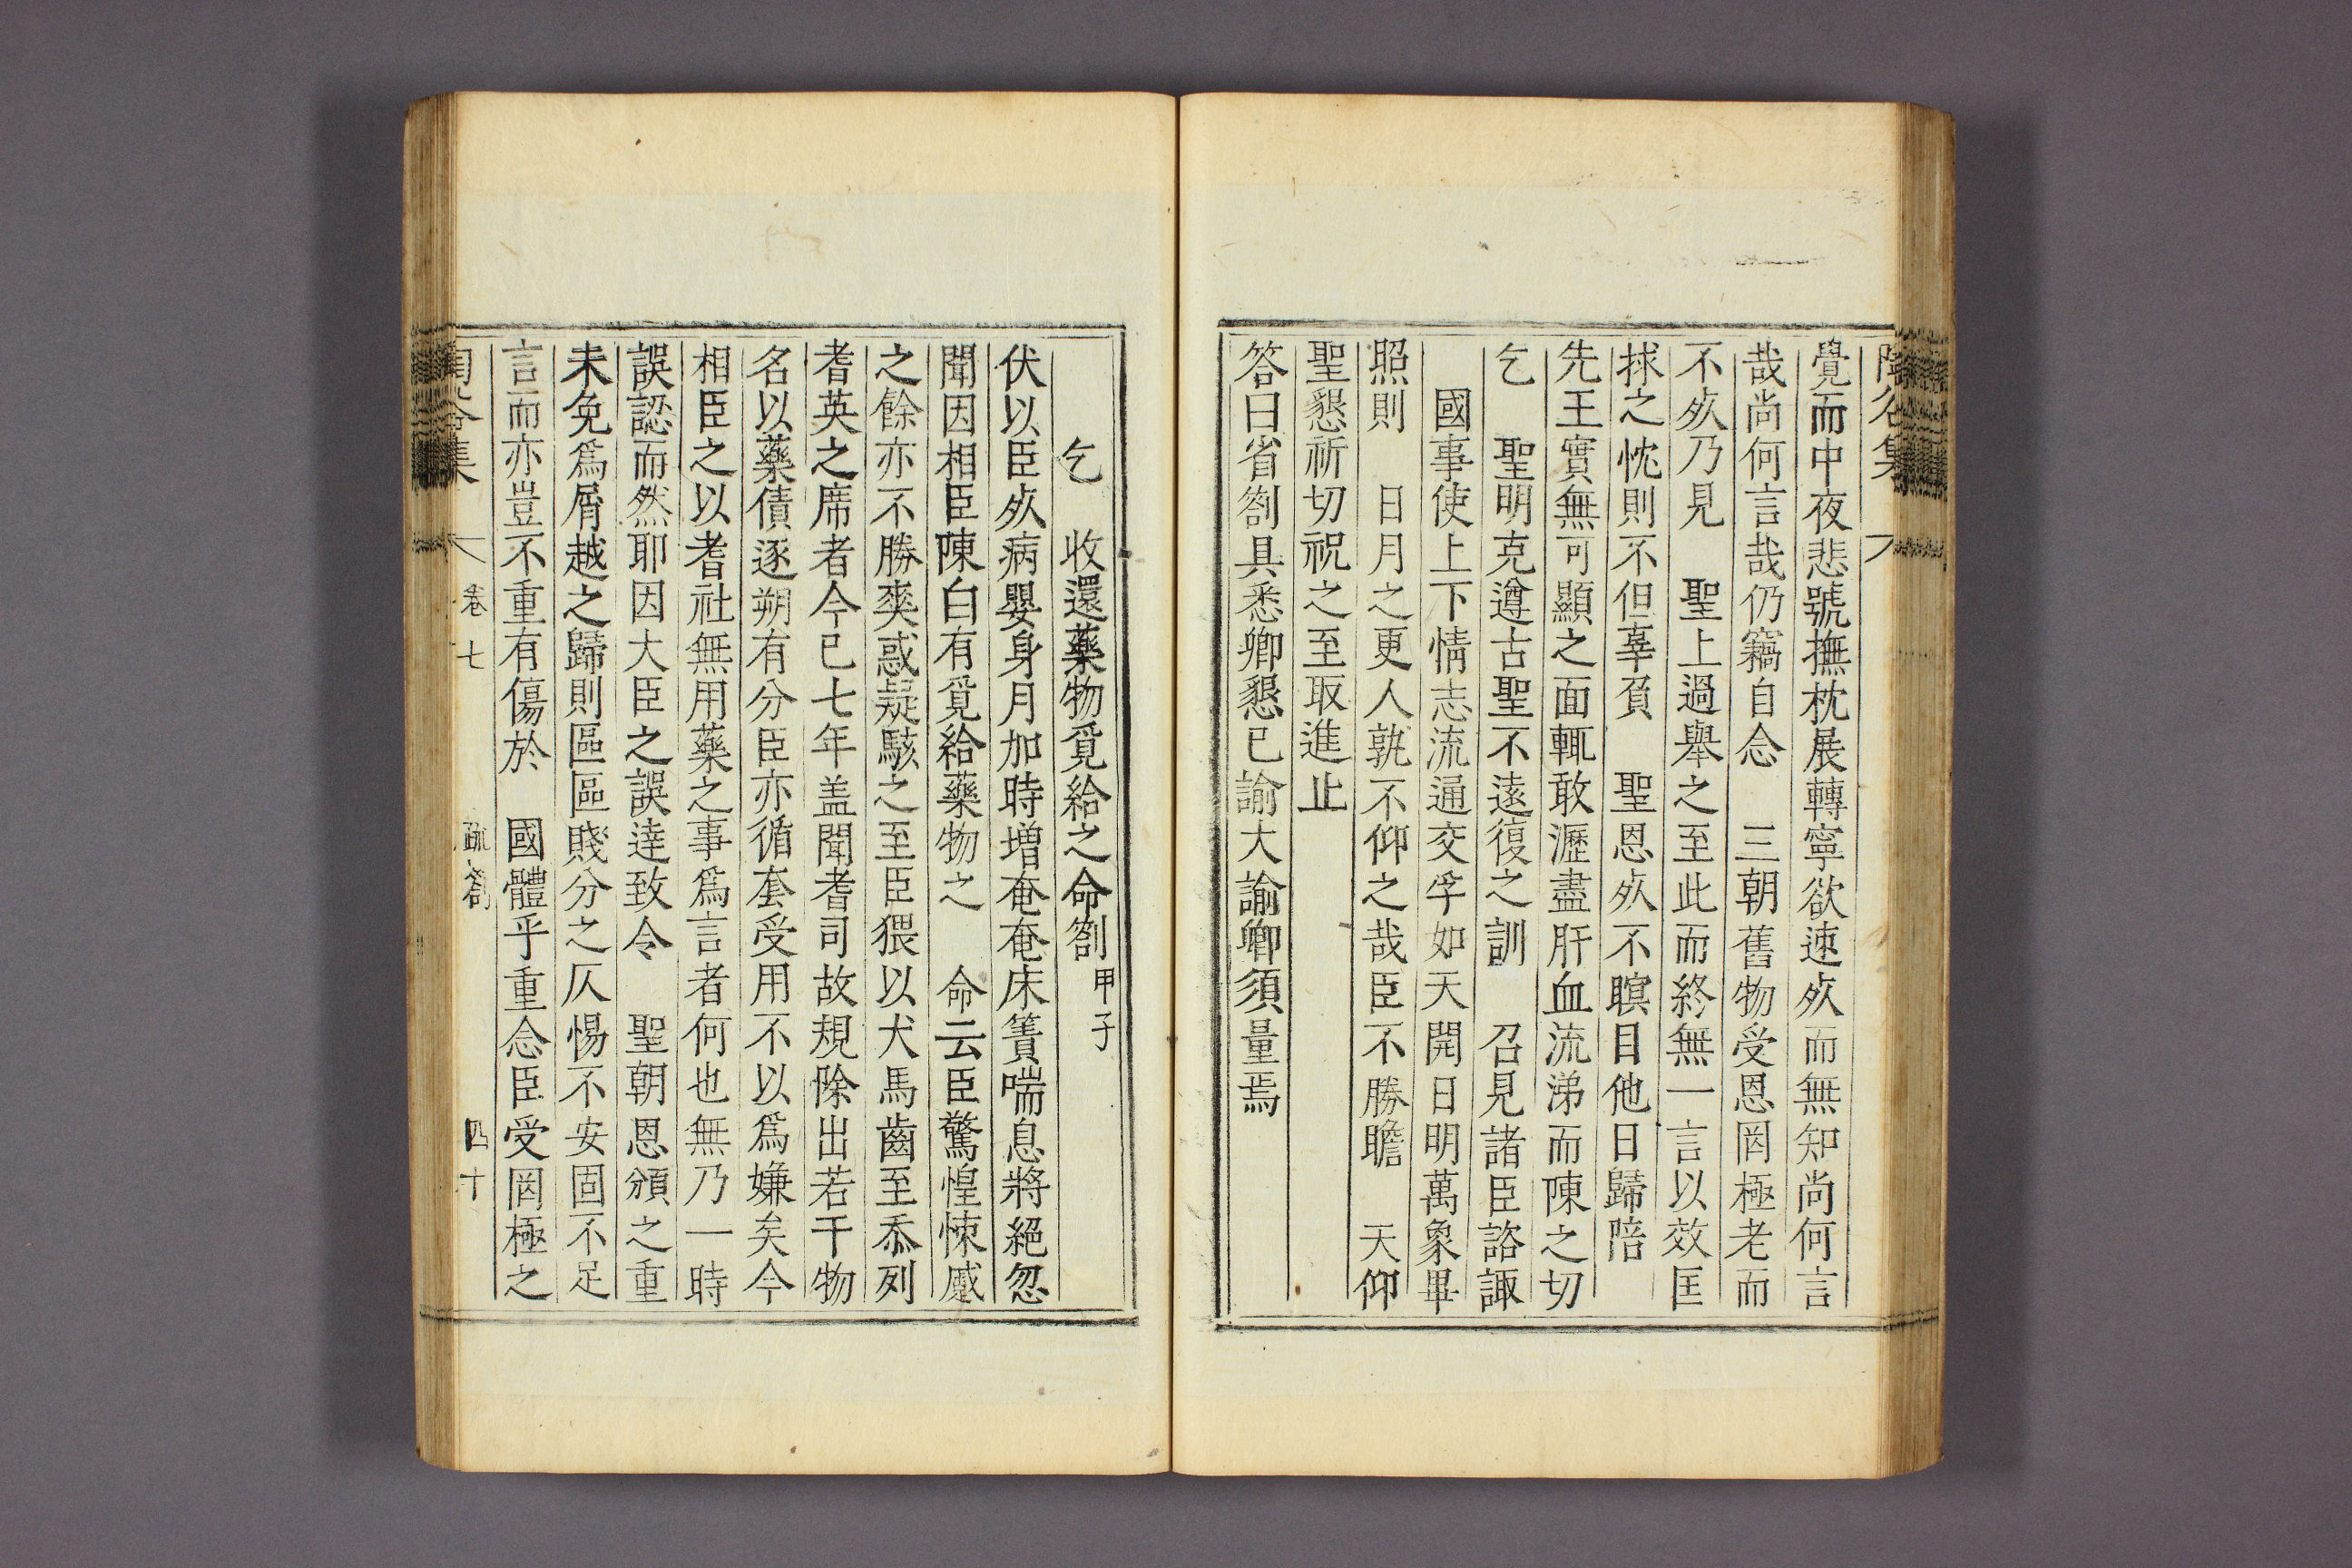 陶谷集
覺而中夜悲號撫枕展轉寧欲速歾而無知尚何言
哉尚何言哉仍竊自念 三朝舊物受恩罔極老而
不歾乃見 聖上過舉之至此而終無一言以效匡
捄之忱則不但辜負 聖恩歾不瞑目他日歸陪
先王實無可顯之面輒敢瀝盡肝血流涕而陳之切
乞 聖明克遵古聖不遠復之訓 召見諸臣諮諏
國事使上下情志流通交孚如天開日明萬象畢
照則 日月之更人孰不仰之哉臣不勝瞻 天仰
聖懇祈切祝之至取進止
答曰省劄具悉卿懇已諭大諭卿須量焉
乞 收還藥物覓給之命劄 甲子
伏以臣歾病嬰身月加時增奄奄床簀喘息將絕忽
聞因相臣陳白有覓給藥物之 命云臣驚惶悚慼
之餘亦不勝爽惑疑駭之至臣猥以犬馬齒至忝列
耆英之席者今已七年盖聞耆司故規除出若干物
名以藥債逐朔有分臣亦循套受用不以爲嫌矣今
相臣之以耆社無用藥之事爲言者何也無乃一時
誤認而然耶因大臣之誤達致令 聖朝恩頒之重
未免爲屑越之歸則區區賤分之仄惕不安固不足
言而亦豈不重有傷於 國體乎重念臣受罔極之
陶谷集 卷七 疏劄 四十